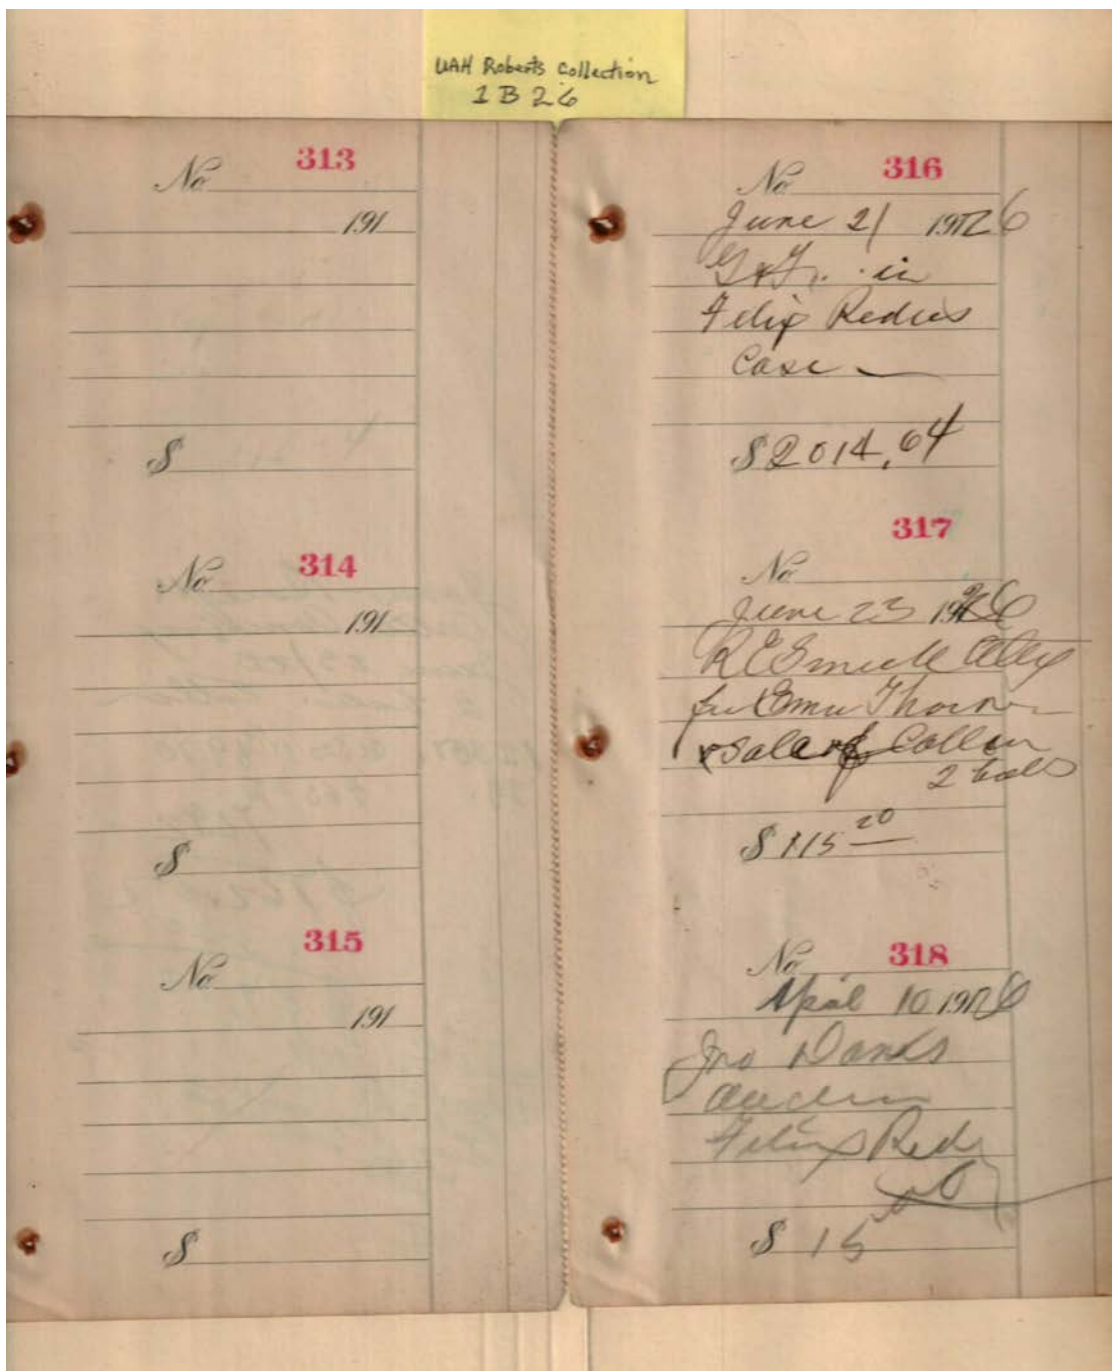 UAH Roberts Collection
1B26
No 313
191
$
No 314
191
$
No 315
191
$
No 316
June 21 1926
in
Felix Redus
Case
$2014.64
No 317
June 23 1926
R E Smith Atty
for Thorn
2 bales
$115 20
No 318
April 10 1926
Jno
Felix Red
$15